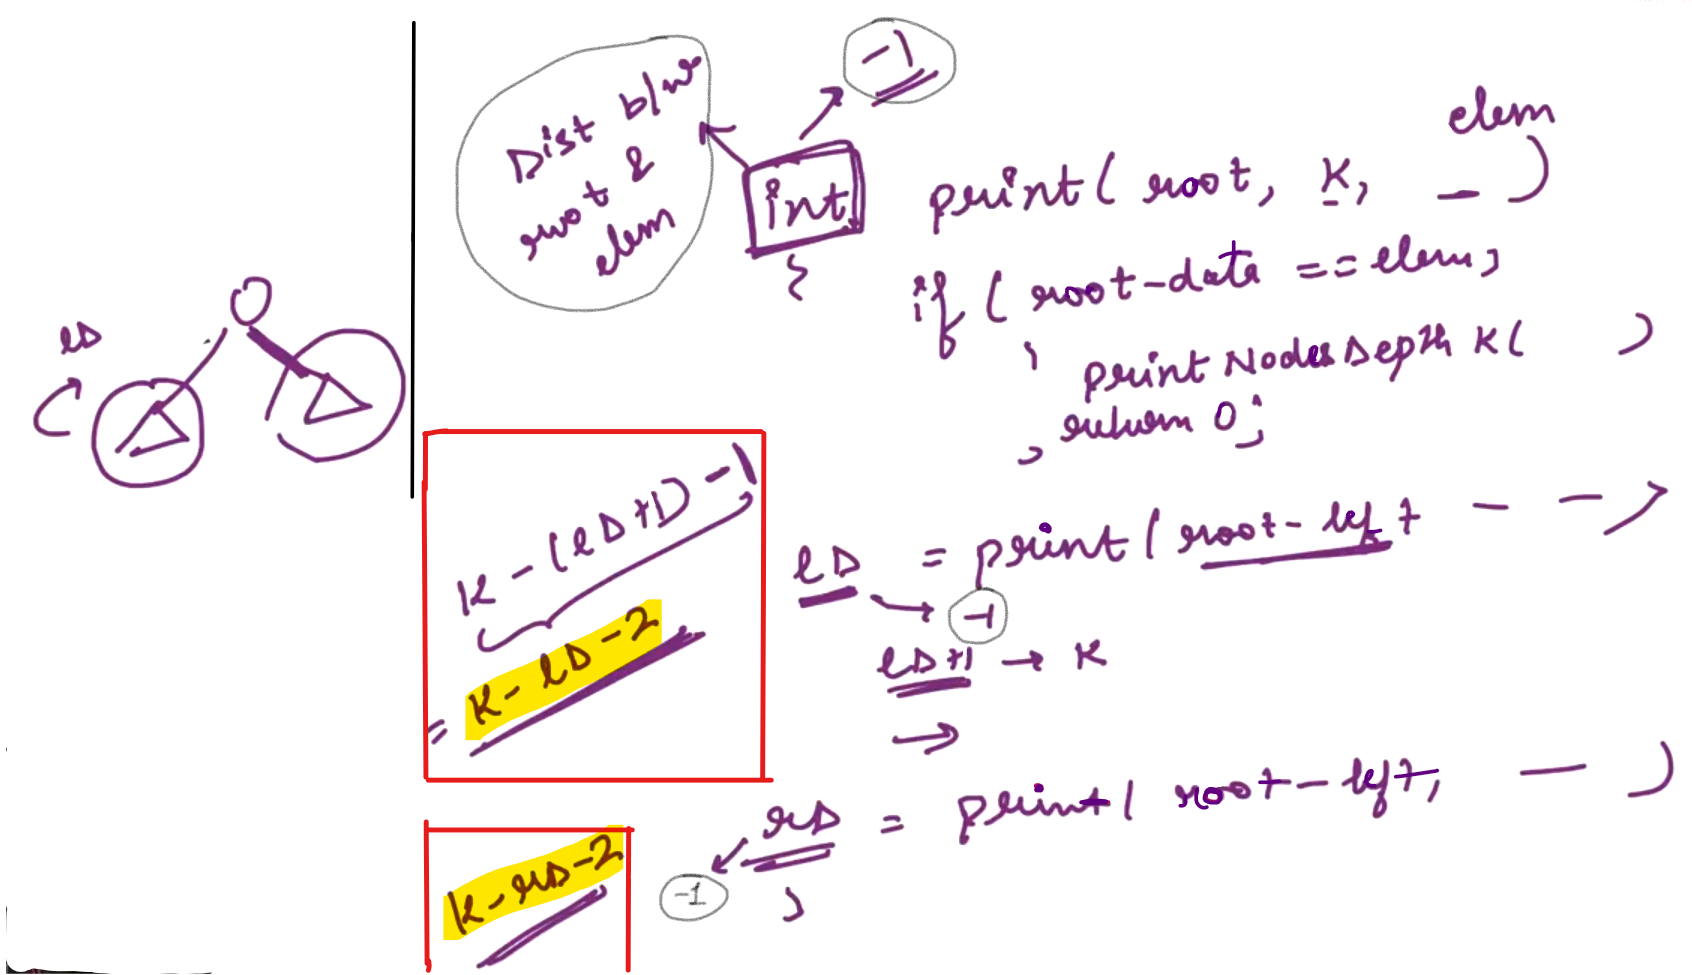 -1
Dist b/w
root &
elem
int print( root, K, _ )
elem
{
if ( root-data == elem)
{
print Nodes Depth K( )
return 0;
}
lD
K - (lD+1) - 1
= K - lD - 2
lD = print( root-left - - )
-1
lD+1 → K
rD = print( root-left, — )
-1
}
K - rD - 2